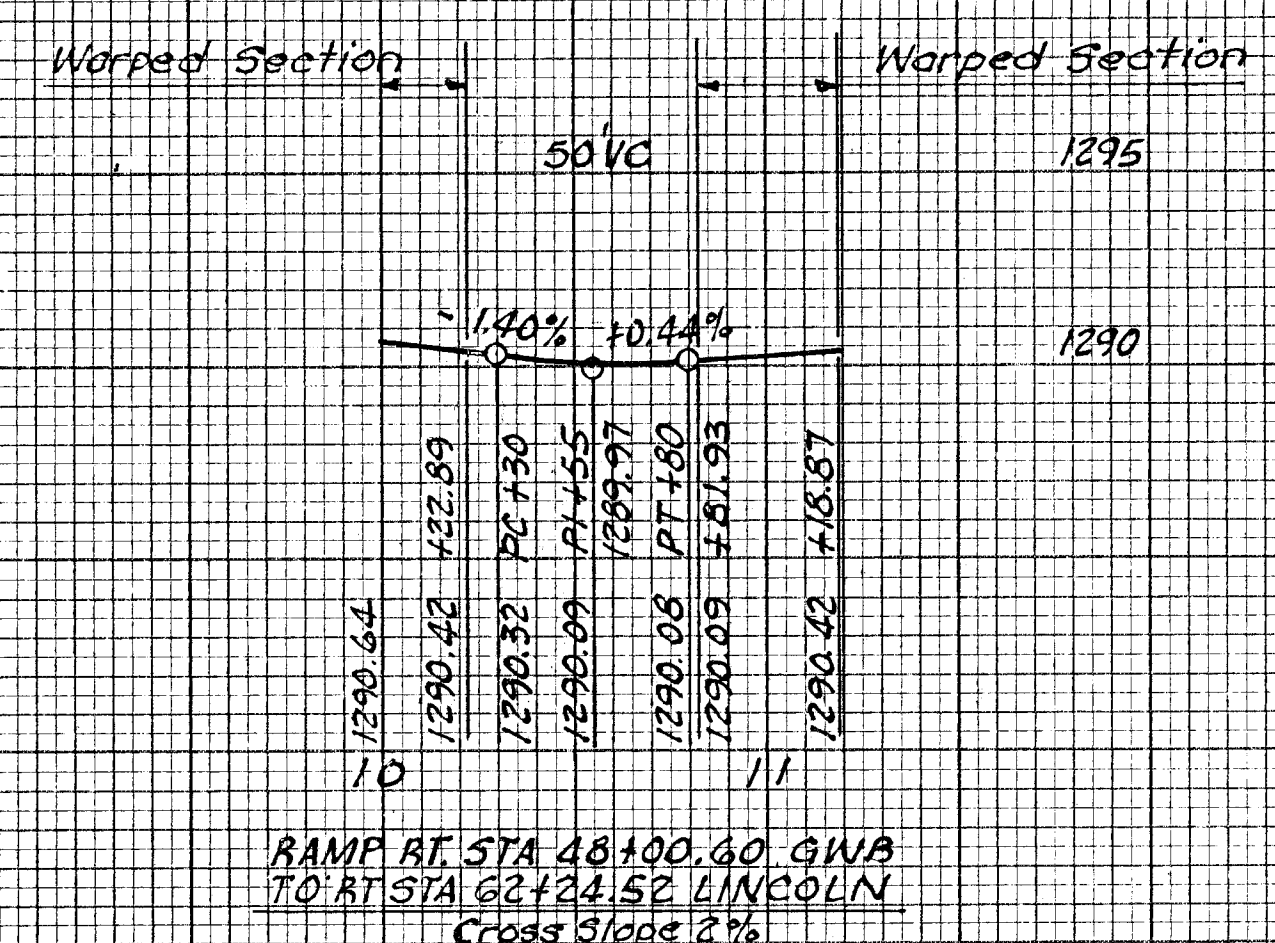 Warped Section
Warped Section
50' VC
1295
- 1.40%
+0.44%
1290
1290.64
1290.42 +22.89
1290.32 PC +30
1290.09 PI +55
1289.97
1290.08 PT +80
1290.09 +81.93
1290.42 +18.87
10
11
RAMP RT. STA 48+00.60 GWB
TO RT STA 62+24.52 LINCOLN
Cross Slope 2%